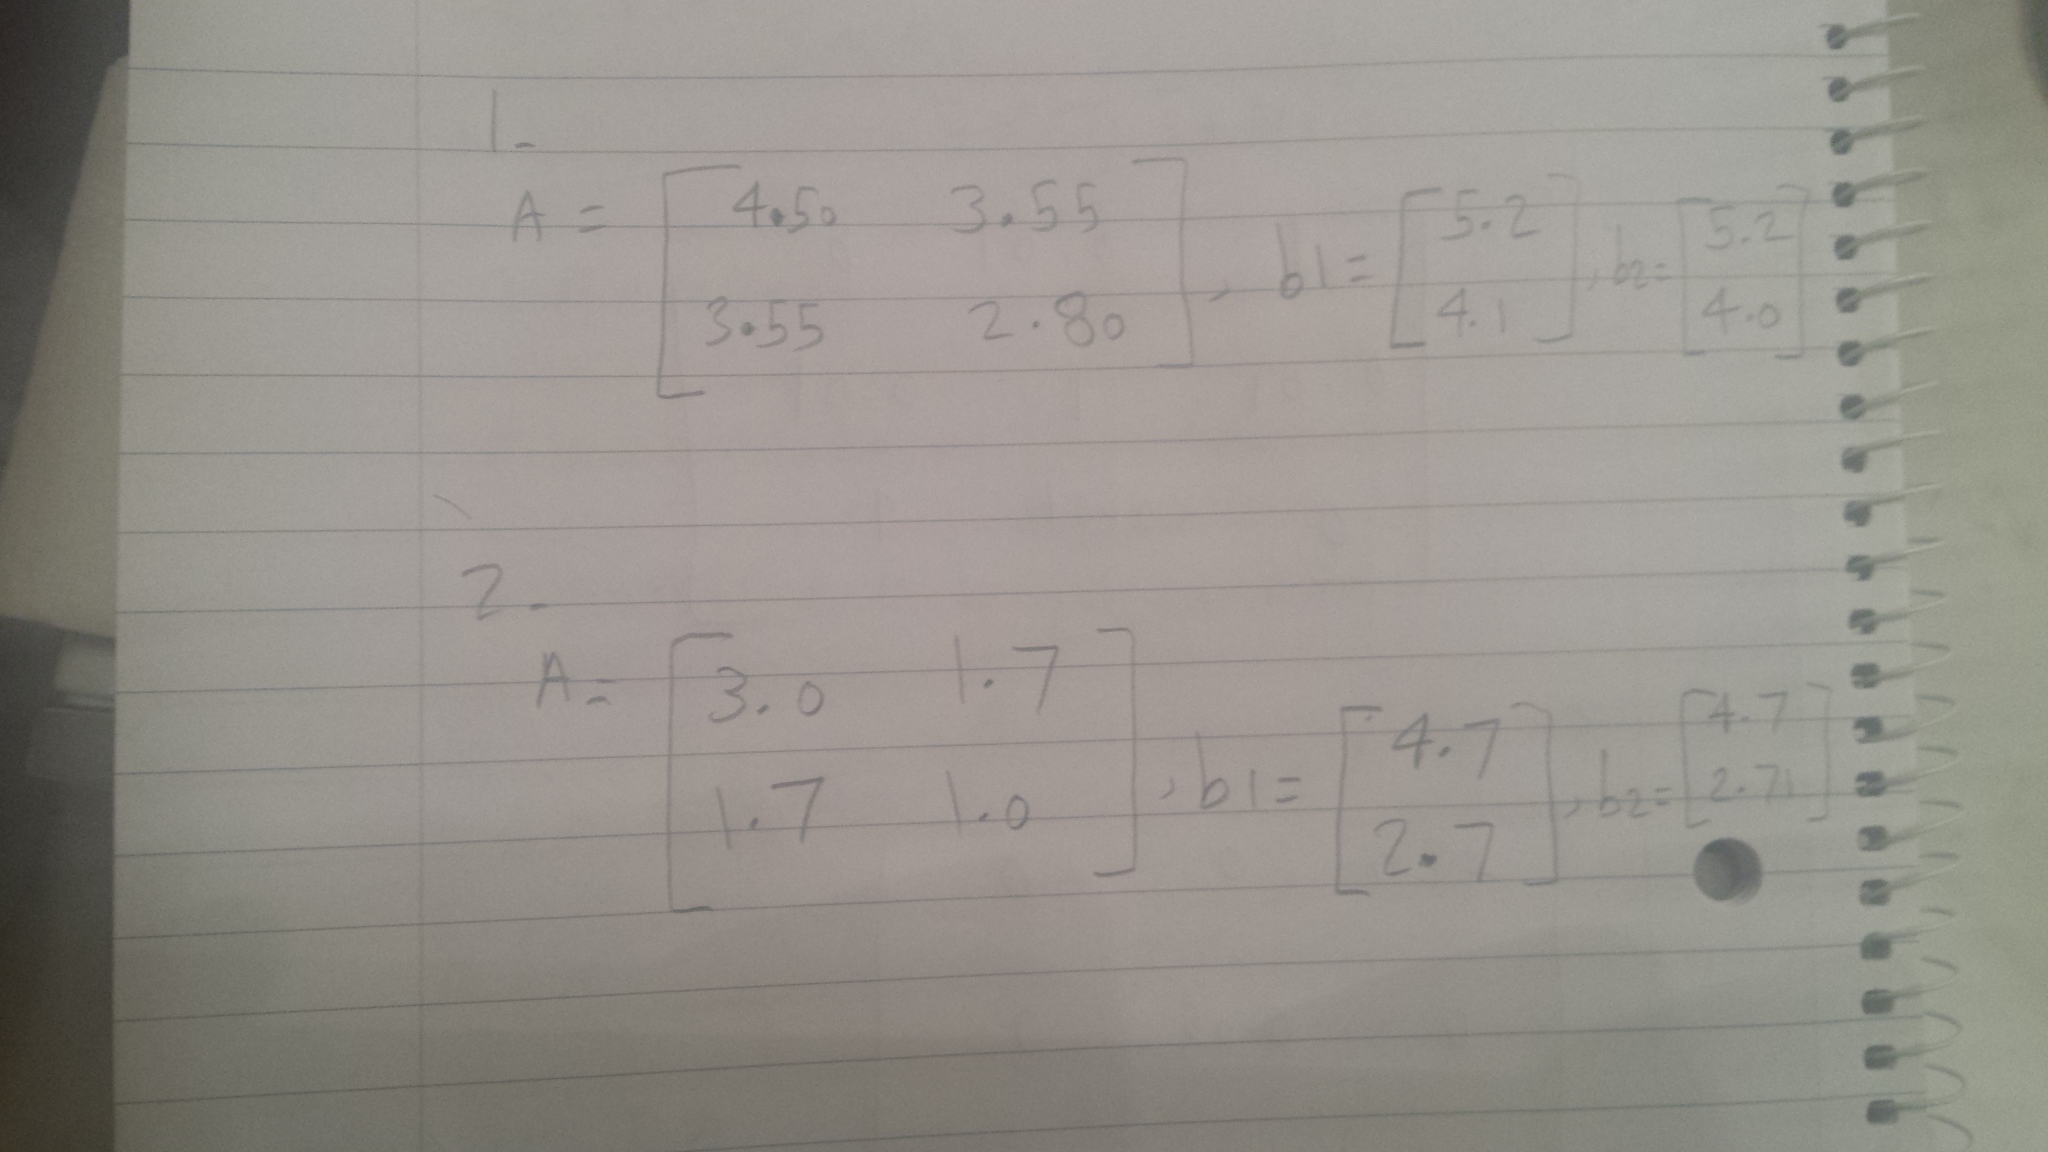 1-
A = [4.50 3.55
3.55 2.80], b1 = [5.2
4.1], b2 = [5.2
4.0]
2-
A = [3.0 1.7
1.7 1.0], b1 = [4.7
2.7], b2 = [4.7
2.71]